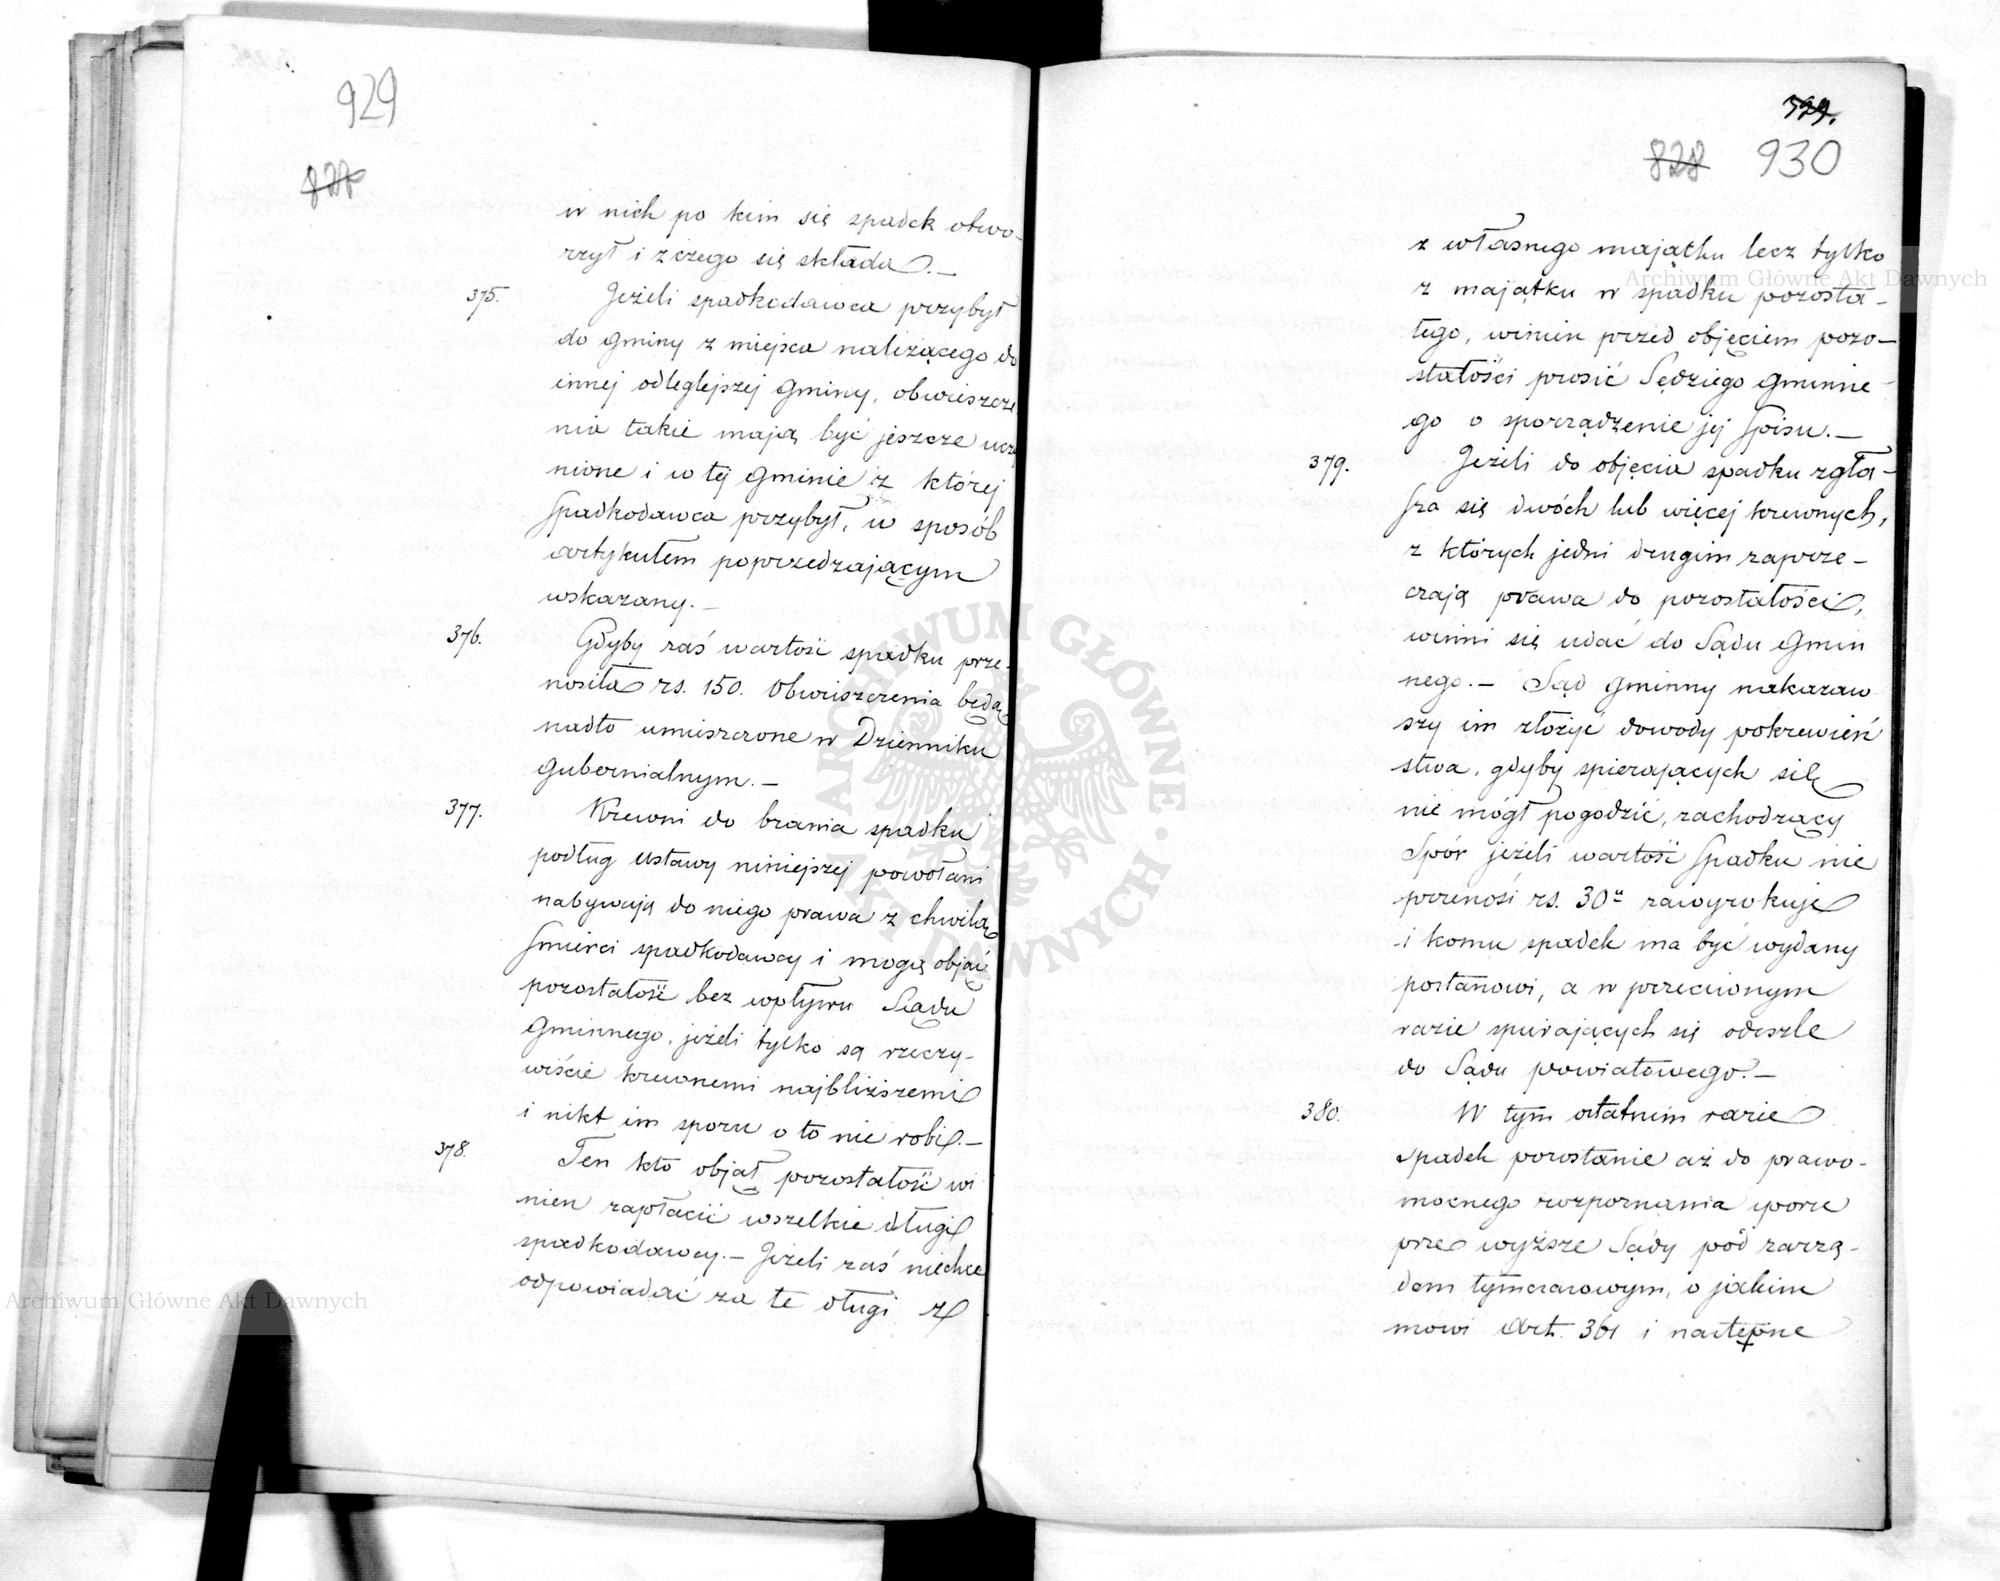 929
827
w nich po kim się spadek otwo-
rzył i z czego się składa.—
375. Jeżeli spadkodawca przybył
do gminy z miejsca należącego do
innej odleglejszej gminy, obwieszcze
nia takie mają być jeszcze uczy
nione i w tej gminie z której
spadkodawca przybył, w sposób
artykułem poprzedzającym
wskazany.—
376. Gdyby zaś wartość spadku prze-
nosiła rs. 150. Obwieszczenia będą
nadto umieszczone w Dzienniku
gubernialnym.—
377. Krewni do brania spadku
podług ustawy niniejszej powołani
nabywają do niego prawa z chwilą
śmierci spadkodawcy i mogą objąć
pozostałość bez wpływu Sądu
Gminnego, jeżeli tylko są rzeczy-
wiście krewnemi najbliższemi
i nikt im sporu o to nie robi.—
378. Ten kto objął pozostałość wi
nien zapłacić wszelkie długi
spadkodawcy.— Jeżeli zaś niechce
odpowiadać za te długi z
828 930
z własnego majątku lecz tylko
z majątku w spadku pozosta-
łego, winien przed objęciem pozo-
stałości prosić Sędziego Gminne-
go o sporządzenie jej spisu.—
379. Jeżeli do objęcia spadku zgła-
sza się dwóch lub więcej krewnych,
z których jedni drugim zaprze-
czają prawa do pozostałości,
winni się udać do Sądu Gmin
nego.— Sąd gminny nakazaw
szy im złożyć dowody pokrewień
stwa, gdyby spierających się
nie mógł pogodzić, zachodzący
spór jeżeli wartość spadku nie
przenosi rs. 30 zawyrokuje
i komu spadek ma być wydany
postanowi, a w przeciwnym
razie spierających się odeszle
do Sądu powiatowego.—
380. W tym ostatnim razie
spadek pozostanie aż do prawo-
mocnego rozpoznania sporu
prze wyższe Sądy pod zarzą-
dem tymczasowym, o jakim
mowi Art. 361 i następne
Archiwum Główne Akt Dawnych
Archiwum Główne Akt Dawnych
ARCHIWUM GŁÓWNE · AKT DAWNYCH ·